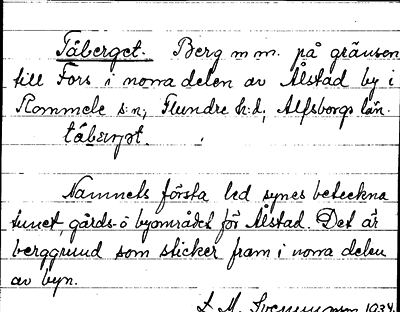 Täberget. Berg m m. på gränsen
till Fors i norra delen av Ålstad by i
Rommele s:n, Flundre h:d, Älfsborgs län.
täbærjət.
Namnets första led synes beteckna
tunet, gårds- o byområdet för Ålstad. Det är
berggrund som sticker fram i norra delen
av byn.
1934.